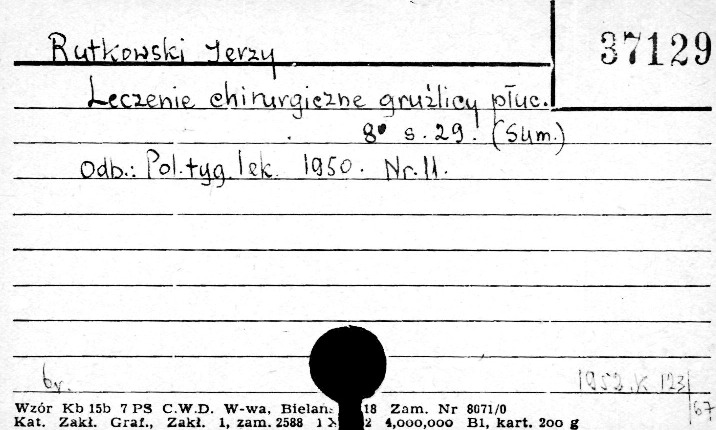 Rutkowski Jerzy
37129
Leczenie chirurgiczne gruźlicy płuc.
8° s. 29. (Sum.)
Odb.: Pol. tyg. lek. 1950. Nr. 11.
br.
1952.K 123
67
Wzór Kb 15b 7 PS C.W.D. W-wa, Bielań 18 Zam. Nr 8071/0
Kat. Zakł. Graf., Zakł. 1, zam. 2588 1 X 2 4,000,000 B1, kart. 200 g